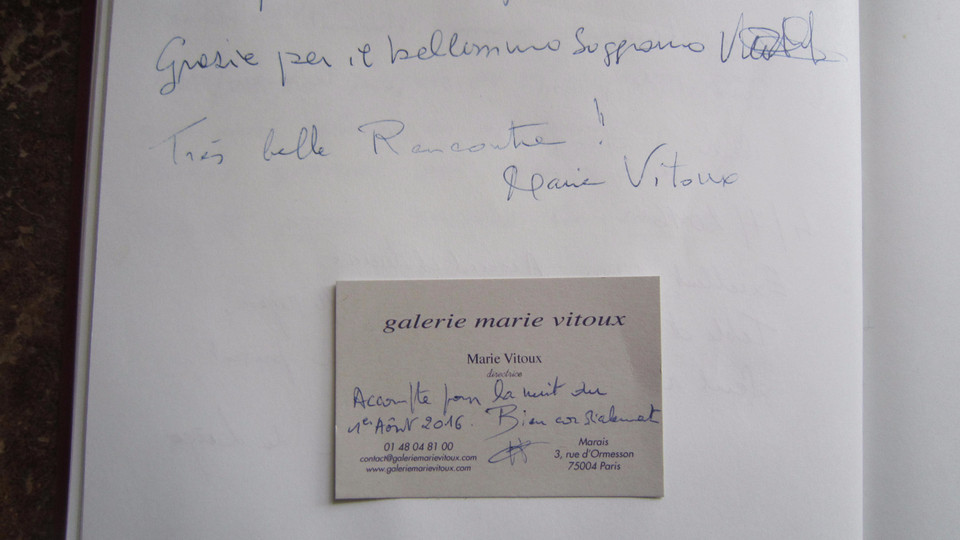 Grazie per il bellissimo Soggiorno
Très belle Rencontre !
Marie Vitoux
galerie marie vitoux
Marie Vitoux
directrice
Accompte pour la nuit du
1er Août 2016. Bien cordialement
01 48 04 81 00
contact@galeriemarievitoux.com
www.galeriemarievitoux.com
Marais
3, rue d'Ormesson
75004 Paris